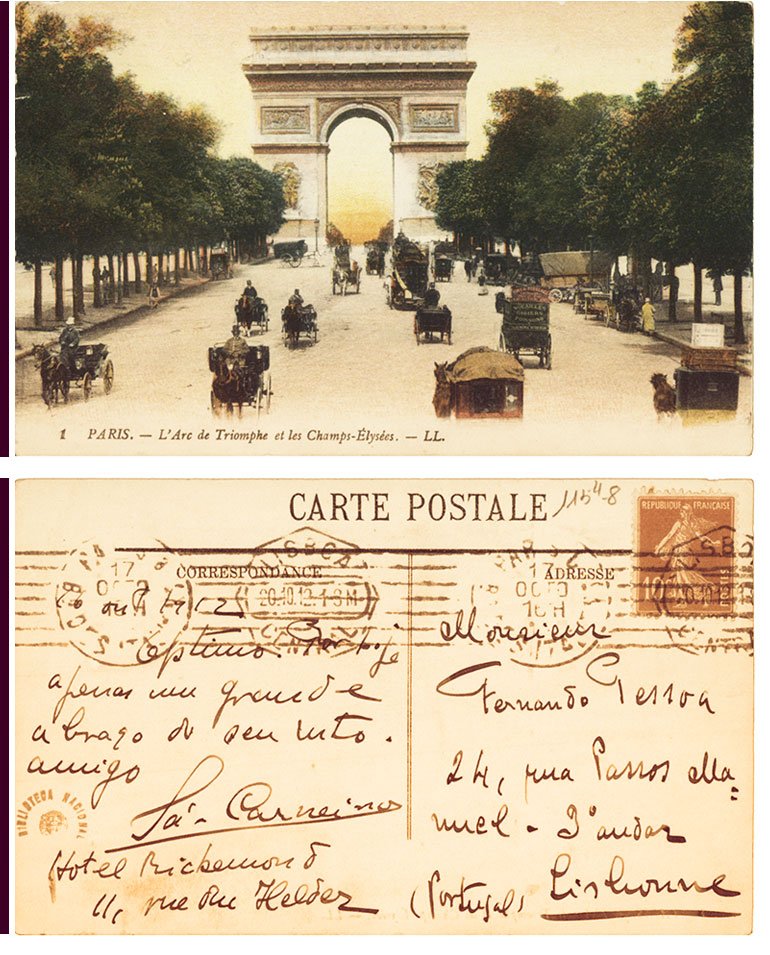 1 PARIS. — L'Arc de Triomphe et les Champs-Élysées. — LL.
CARTE POSTALE
1154-8
REPUBLIQUE FRANÇAISE
CORRESPONDANCE
ADRESSE
17
OCT
LISBOA
20.10.12.1-3M
CENTRAL
17
OCT
16H
LISBO
20.10.12
1912
Optimo. Por hoje
apenas um grande
abraço do seu mto.
amigo
Sá-Carneiro
Hotel Richemond
11, rue du Helder
BIBLIOTECA NACIONAL
Monsieur
Fernando Pessoa
24, rua Passos Ma=
nuel - 3º andar
(Portugal) Lisbonne